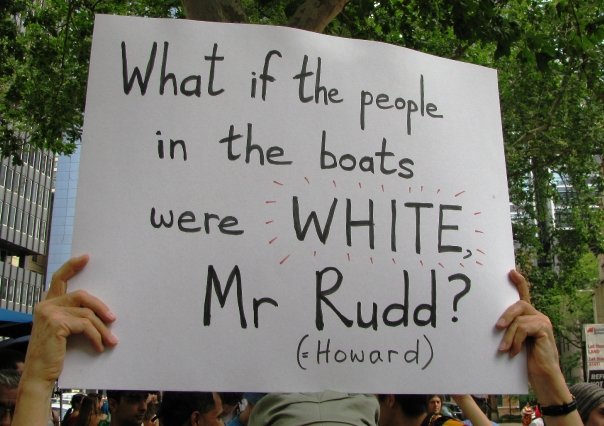 What if the people
in the boats
were WHITE,
Mr Rudd?
(=Howard)